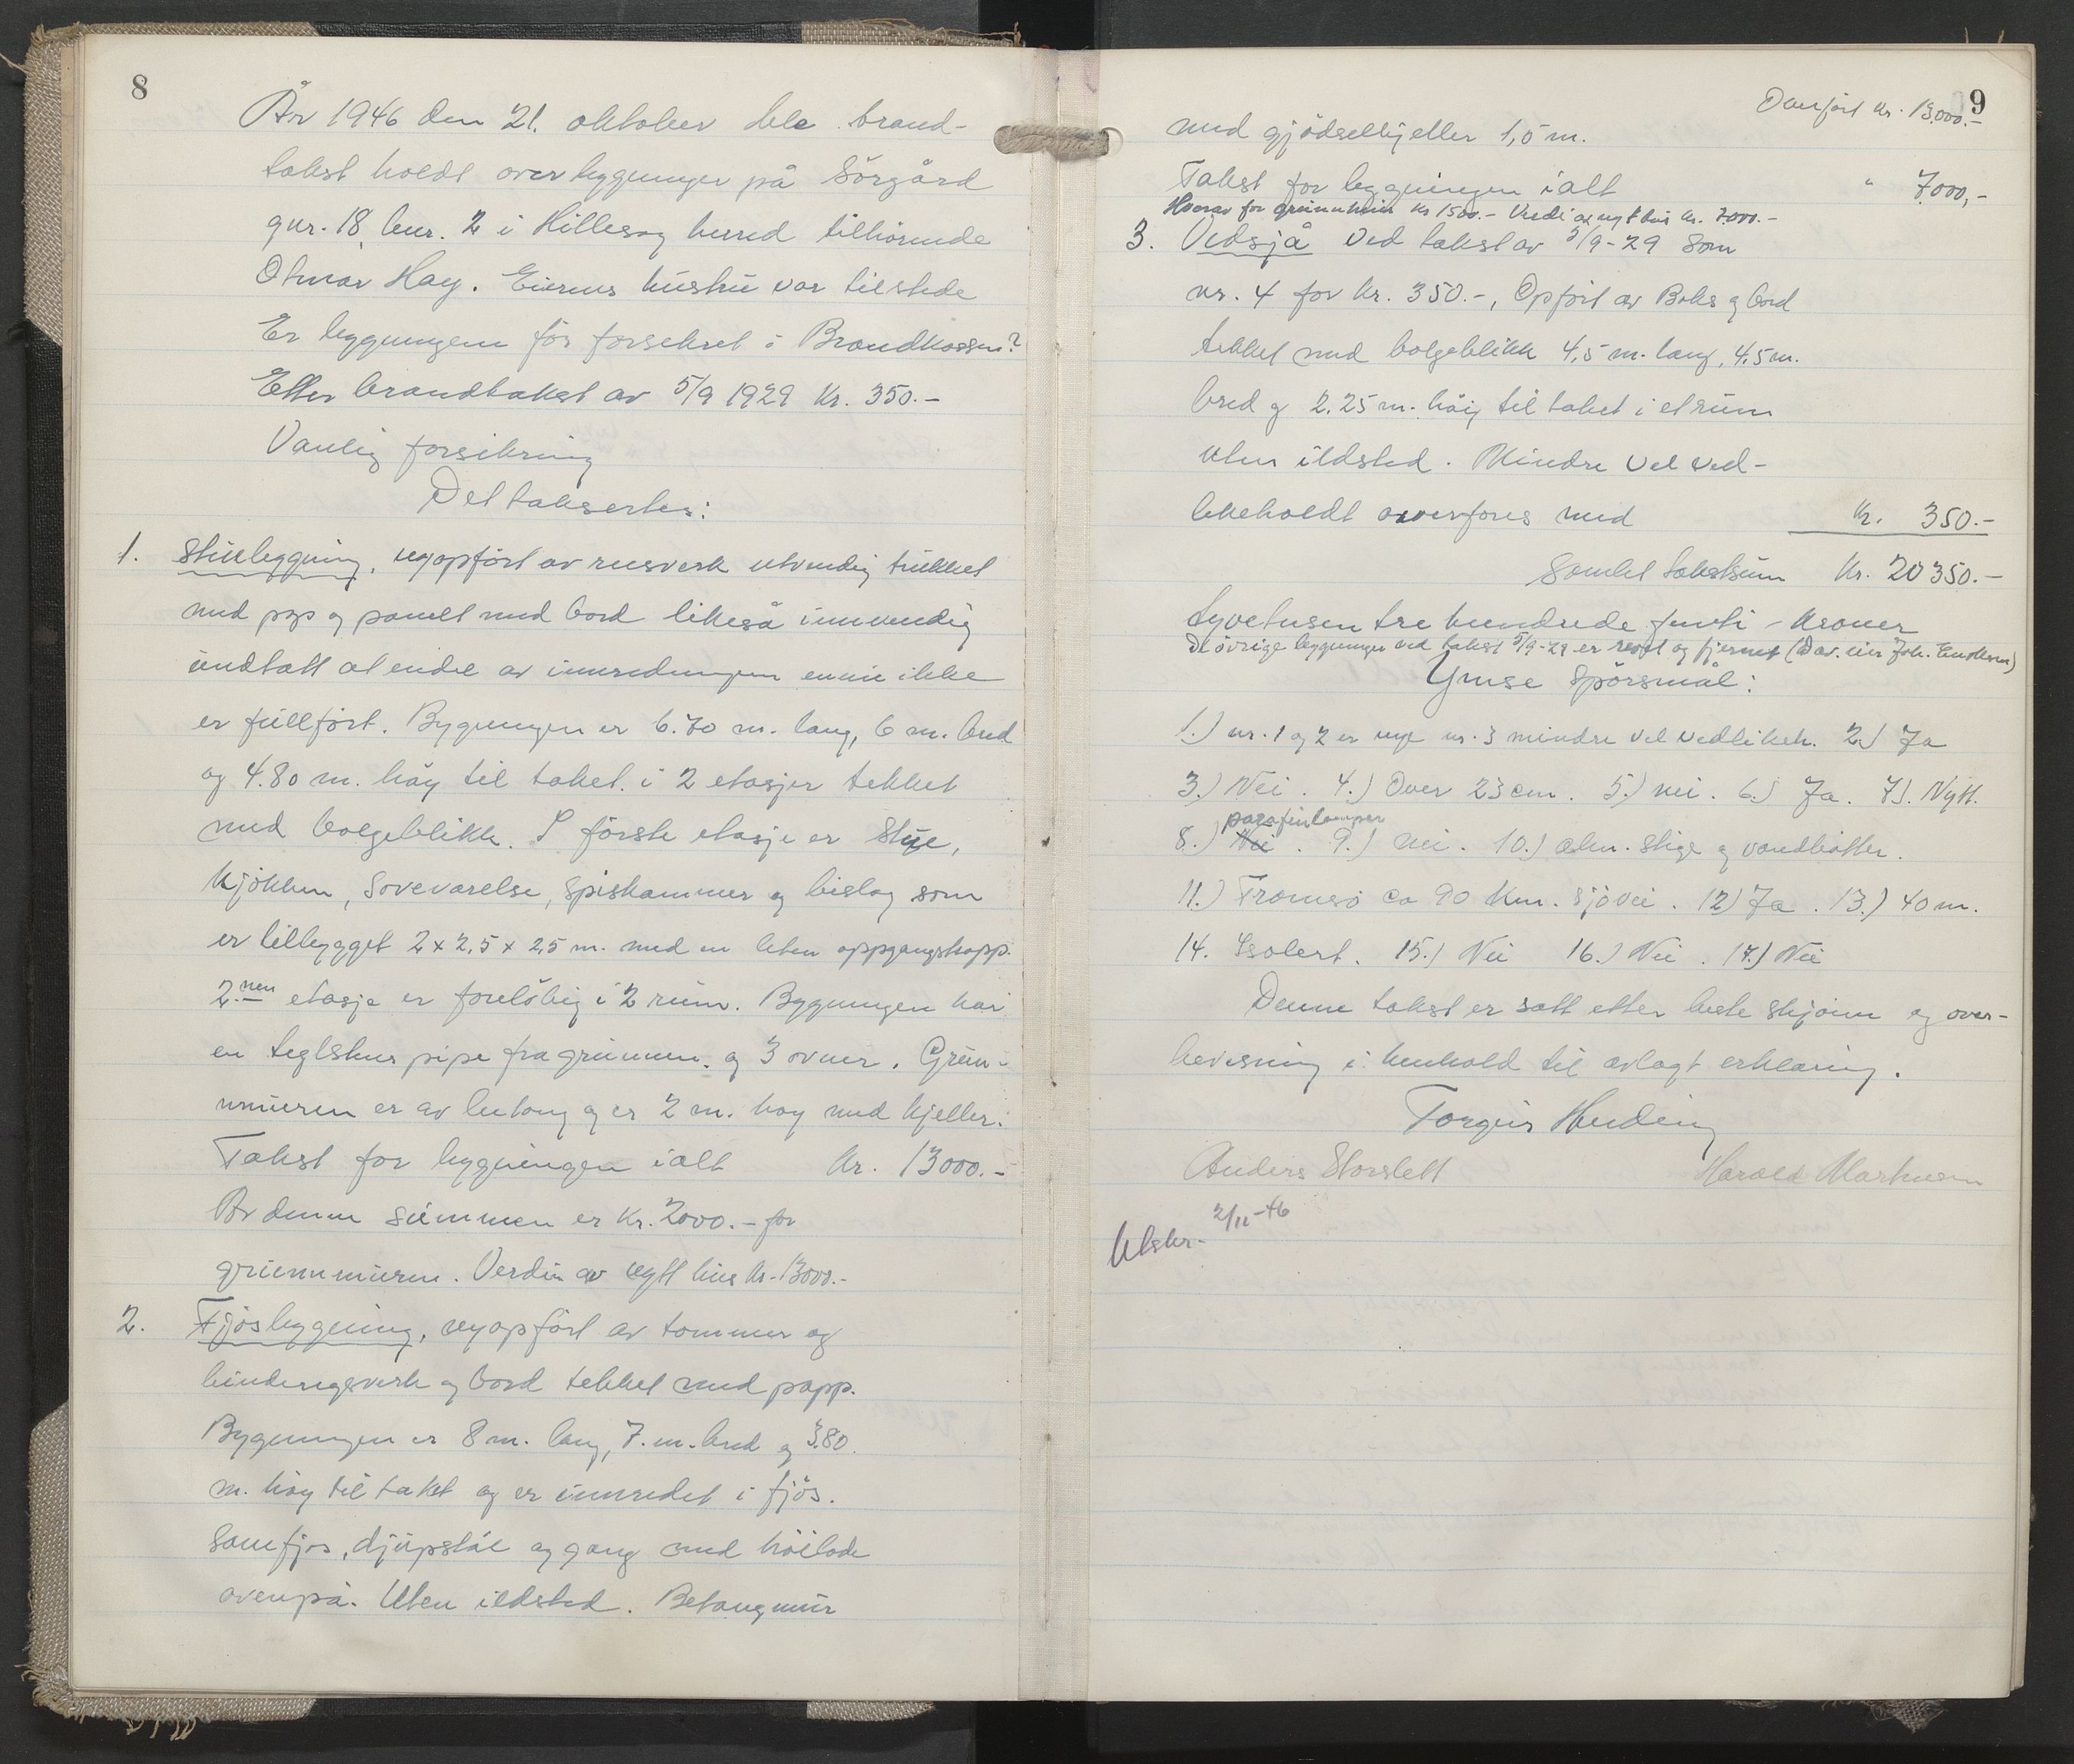 8
År 1946 den 21. oktober ble brand-
takst holdt over bygninger på Sörgård
gnr. 18, bnr. 2 i Hillesøy herred tilhörende
Otmar Hay. Eierens hustru var tilstede
Er bygningene för forsikret i Brandkassen?
Etter brandtakst av 5/9 1929 kr. 350.-
Vanlig forsikring
Det taksertes:
1. Stuebygning, nyopfört av reisverk utvendig trukket
med pap og panelt med bord likeså innvendig
undtatt at endel av innredningen ennu ikke
er fullfört. Bygningen er 6.70 m. lang, 6 m. bred
og 4.80 m. höy til taket i 2 etasjer tekket
med bølgeblikk. I förste etasje er Stue,
Kjökken, Soveværelse, Spiskammer og bislag som
er tilbygget 2 x 2,5 x 2,5 m. med en liten oppgangstrapp.
2.nen etasje er forelöbig i 2 rum. Bygningen har
en teglstens pipe fra grunnen og 3 ovner. Grun-
nmuren er av betong og er 2 m. høy med kjeller.
Takst for bygningen ialt kr. 13000.-
Av denne summen er kr. 2000.- for
grunnmuren. Verdien av nytt hus kr. 13000.-
2. Fjösbygning, nyopfört av tømmer og
bindingsverk og bord tekket med papp.
Bygningen er 8 m. lang, 7. m. bred og 3.80
m. höy til taket og er innredet i fjös.
Sauefjøs, djupstål og gang med höilade
ovenpå. Uten ildsted. Betongmur
9
Overfört kr. 13000.-
med gjödselkjeller 1,5 m.
Takst for bygningen ialt " 7.000,-
Hvorav for grunnmur kr 1500.- Verdi av nytt hus kr. 7000.-
3. Vedsjå Ved takst av 5/9-29 Som
nr. 4 for kr. 350.-, Opfört av Boks og bord
tekket med bølgeblikk 4,5 m. lang, 4.5 m.
bred og 2.25 m. höi til taket i et rum
uten ildsted. Mindre vel ved-
likeholdt overføres med kr. 350.-
Samlet takstsum kr. 20350.-
Tyvetusen tre hundrede femti - kroner
De övrige bygninger ved takst 5/9-29 er revet og fjernet (Dav. eier Joh. Enoksen)
Ymse Spörsmål:
1.) nr. 1 og 2 er nye nr. 3 mindre vel vedlikeh. 2.) Ja
3.) Nei. 4.) Over 23 cm. 5.) nei. 6.) Ja. 7). Nytt.
parafinlamper
8.) Nei. 9.) nei. 10.) alm. stige og vandbøtter.
11.) Tromsö ca 90 km. Sjövei. 12) Ja. 13.) 40 m.
14. Isolert. 15.) Nei 16.) Nei. 17.) Nei
Denne takst er satt etter beste skjönn og over-
bevisning i henhold til avlagt erklæring.
Torgeir Heiding
Anders Storslett Harald Markussen
Utskr. 2/11-46